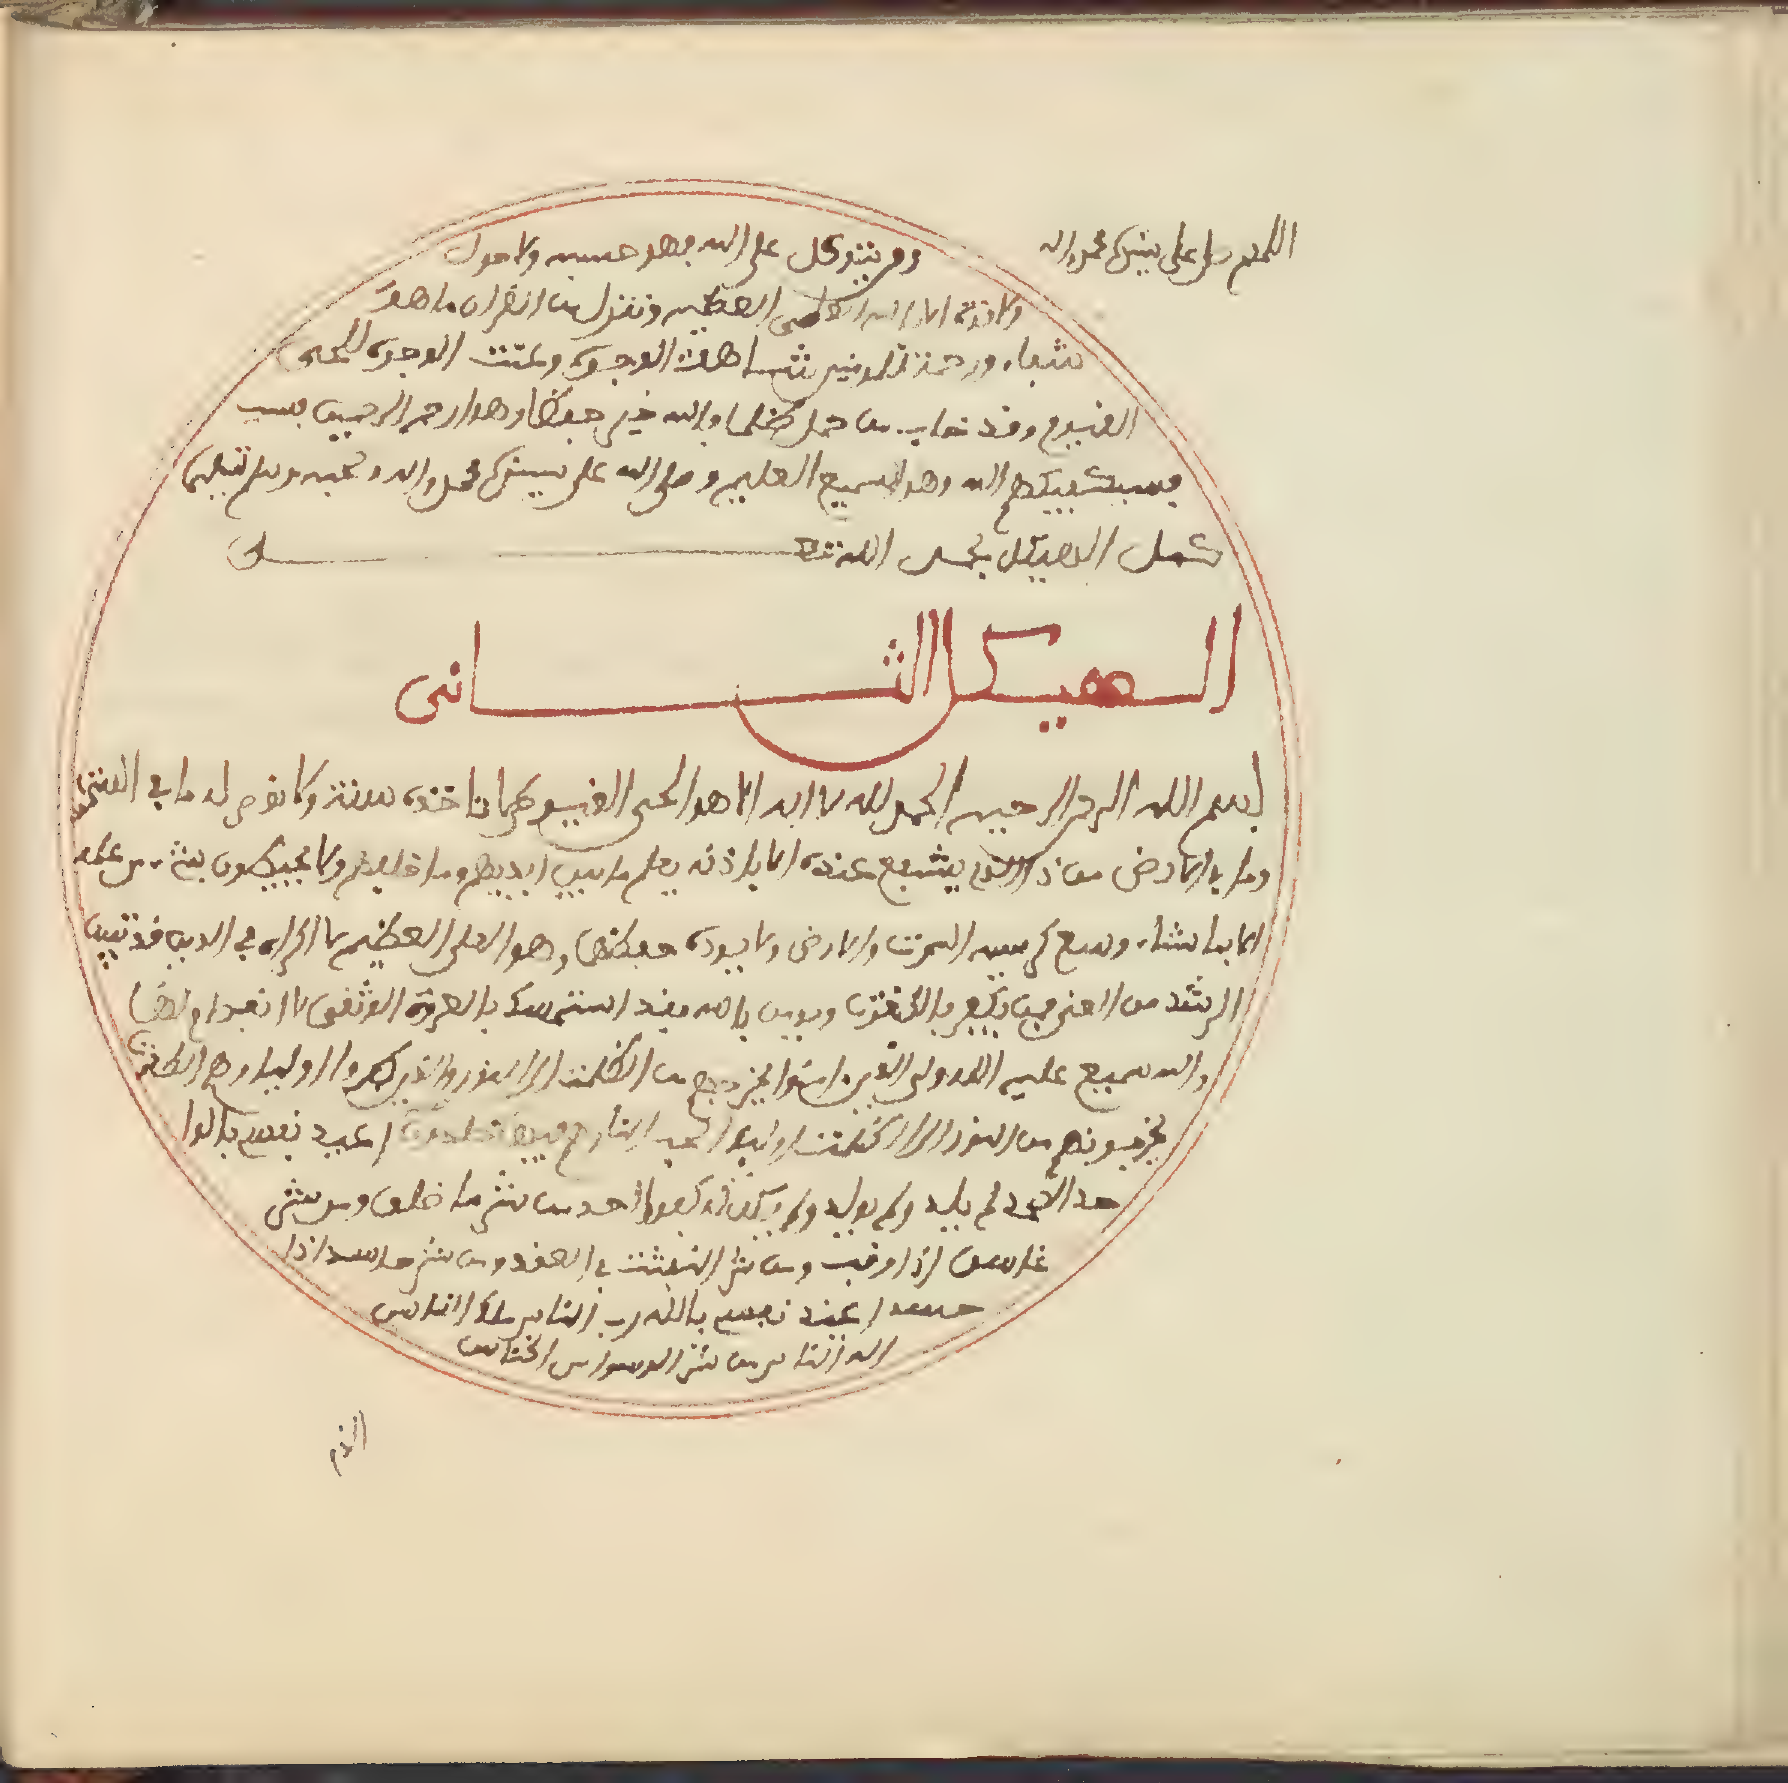 اللهم صل على سيدنا محمد واله
ومن يتوكل على الله فهو حسبه ولا حول
ولا قوة الا بالله العلي العظيم وننزل من القران ما هو
شفاء ورحمة للمومنين شاهت الوجوه وعنت الوجوه للحى
القيوم وقد خاب من حمل ظلما والله خير حفظا وهو ارحم الرحمين فسيـ
فسيكفيكهم الله وهو السميع العليم وصلى الله على سيدنا محمد واله وصحبه وسلم تسليما
كمل الهيكل بحمد الله تعالى
الهيكل الثانى
بسم الله الرحمن الرحيم الحمد لله لا اله الا هو الحي القيوم لا تاخذه سنة ولا نوم له ما في السموت
وما في الارض من ذا الذي يشفع عنده الا باذنه يعلم ما بين ايديهم وما خلفهم ولا يحيطون بشيء من علمه
الا بما شاء وسع كرسيه السموت والارض ولا يوده حفظهما وهو العلي العظيم لا اكراه في الدين قد تبين
الرشد من الغي فمن يكفر بالطغوت ويومن بالله فقد استمسك بالعروة الوثقى لا انفصام لها
والله سميع عليم الله ولي الذين امنوا يخرجهم من الظلمت الى النور والذين كفروا اولياوهم الطغوت
يخرجونهم من النور الى الظلمت اوليك اصحب النار هم فيها خلدون اعيذ نفسي بالوا
حد الصمد لم يلد ولم يولد ولم يكن له كفوا احد من شر ما خلق ومن شر
غاسق اذا وقب ومن شر النفثت في العقد ومن شر حاسد اذا
حسد اعيذ نفسي بالله رب الناس ملك الناس
اله الناس من شر الوسواس الخناس